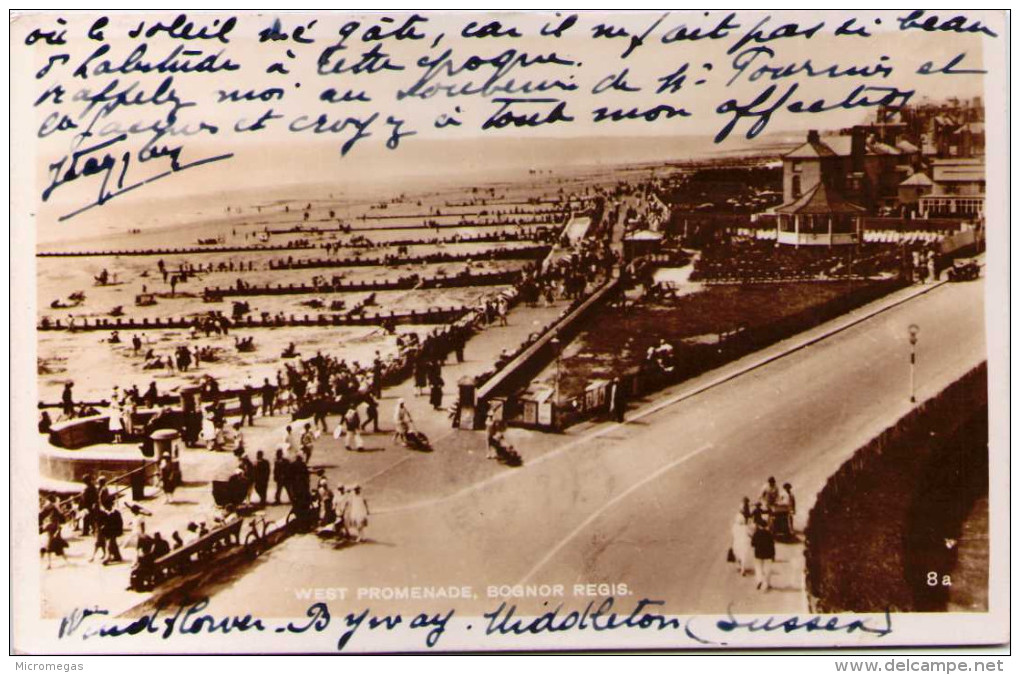 où le soleil me gâte, car il ne fait pas si beau
d'habitude à cette époque.
rappelez moi au souvenir de Mr. Tournié et
Jacques et croyez à tout mon affection
WEST PROMENADE, BOGNOR REGIS.
8a
Windflower - Byway. Middleton (Sussex)
Micromegas
delcampe.net